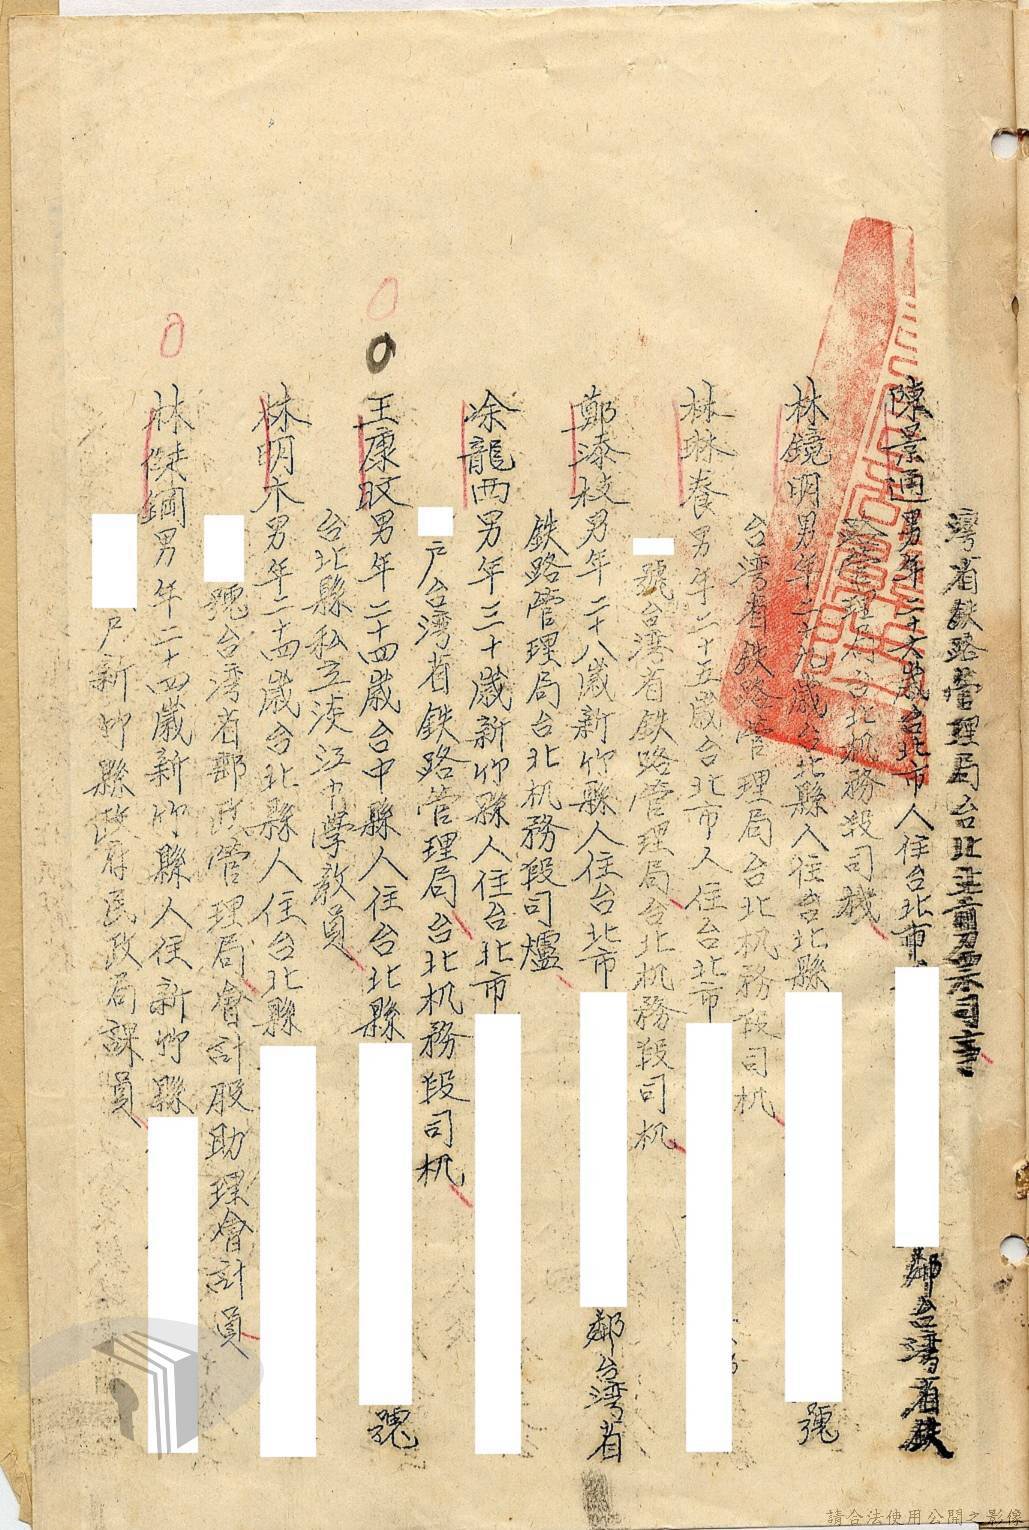 灣省鉄路管理局台北
陳景通男年二十六歲台北市人住台北市
鄰台灣省鉄
路管理局台北机務段司機
林鏡明男年二十九歲台北縣人住台北縣
號
台湾省鉄路管理局台北机務段司机
林琳養男年二十五歲台北市人住台北市
號台湾省鉄路管理局台北机務段司机
鄭添枝男年二十八歲新竹縣人住台北市
鄰台湾省
鉄路管理局台北机務段司爐
凃龍西男年三十歲新竹縣人住台北市
户台湾省鉄路管理局台北机務段司机
王康旼男年二十四歲台中縣人住台北縣
號
台北縣私立淡江中學教員
林明木男年二十四歲台北縣人住台北縣
號台湾省郵政管理局會計股助理會計員
林傑鋼男年二十四歲新竹縣人住新竹縣
户新竹縣政府民政局課員
請合法使用公開之影像